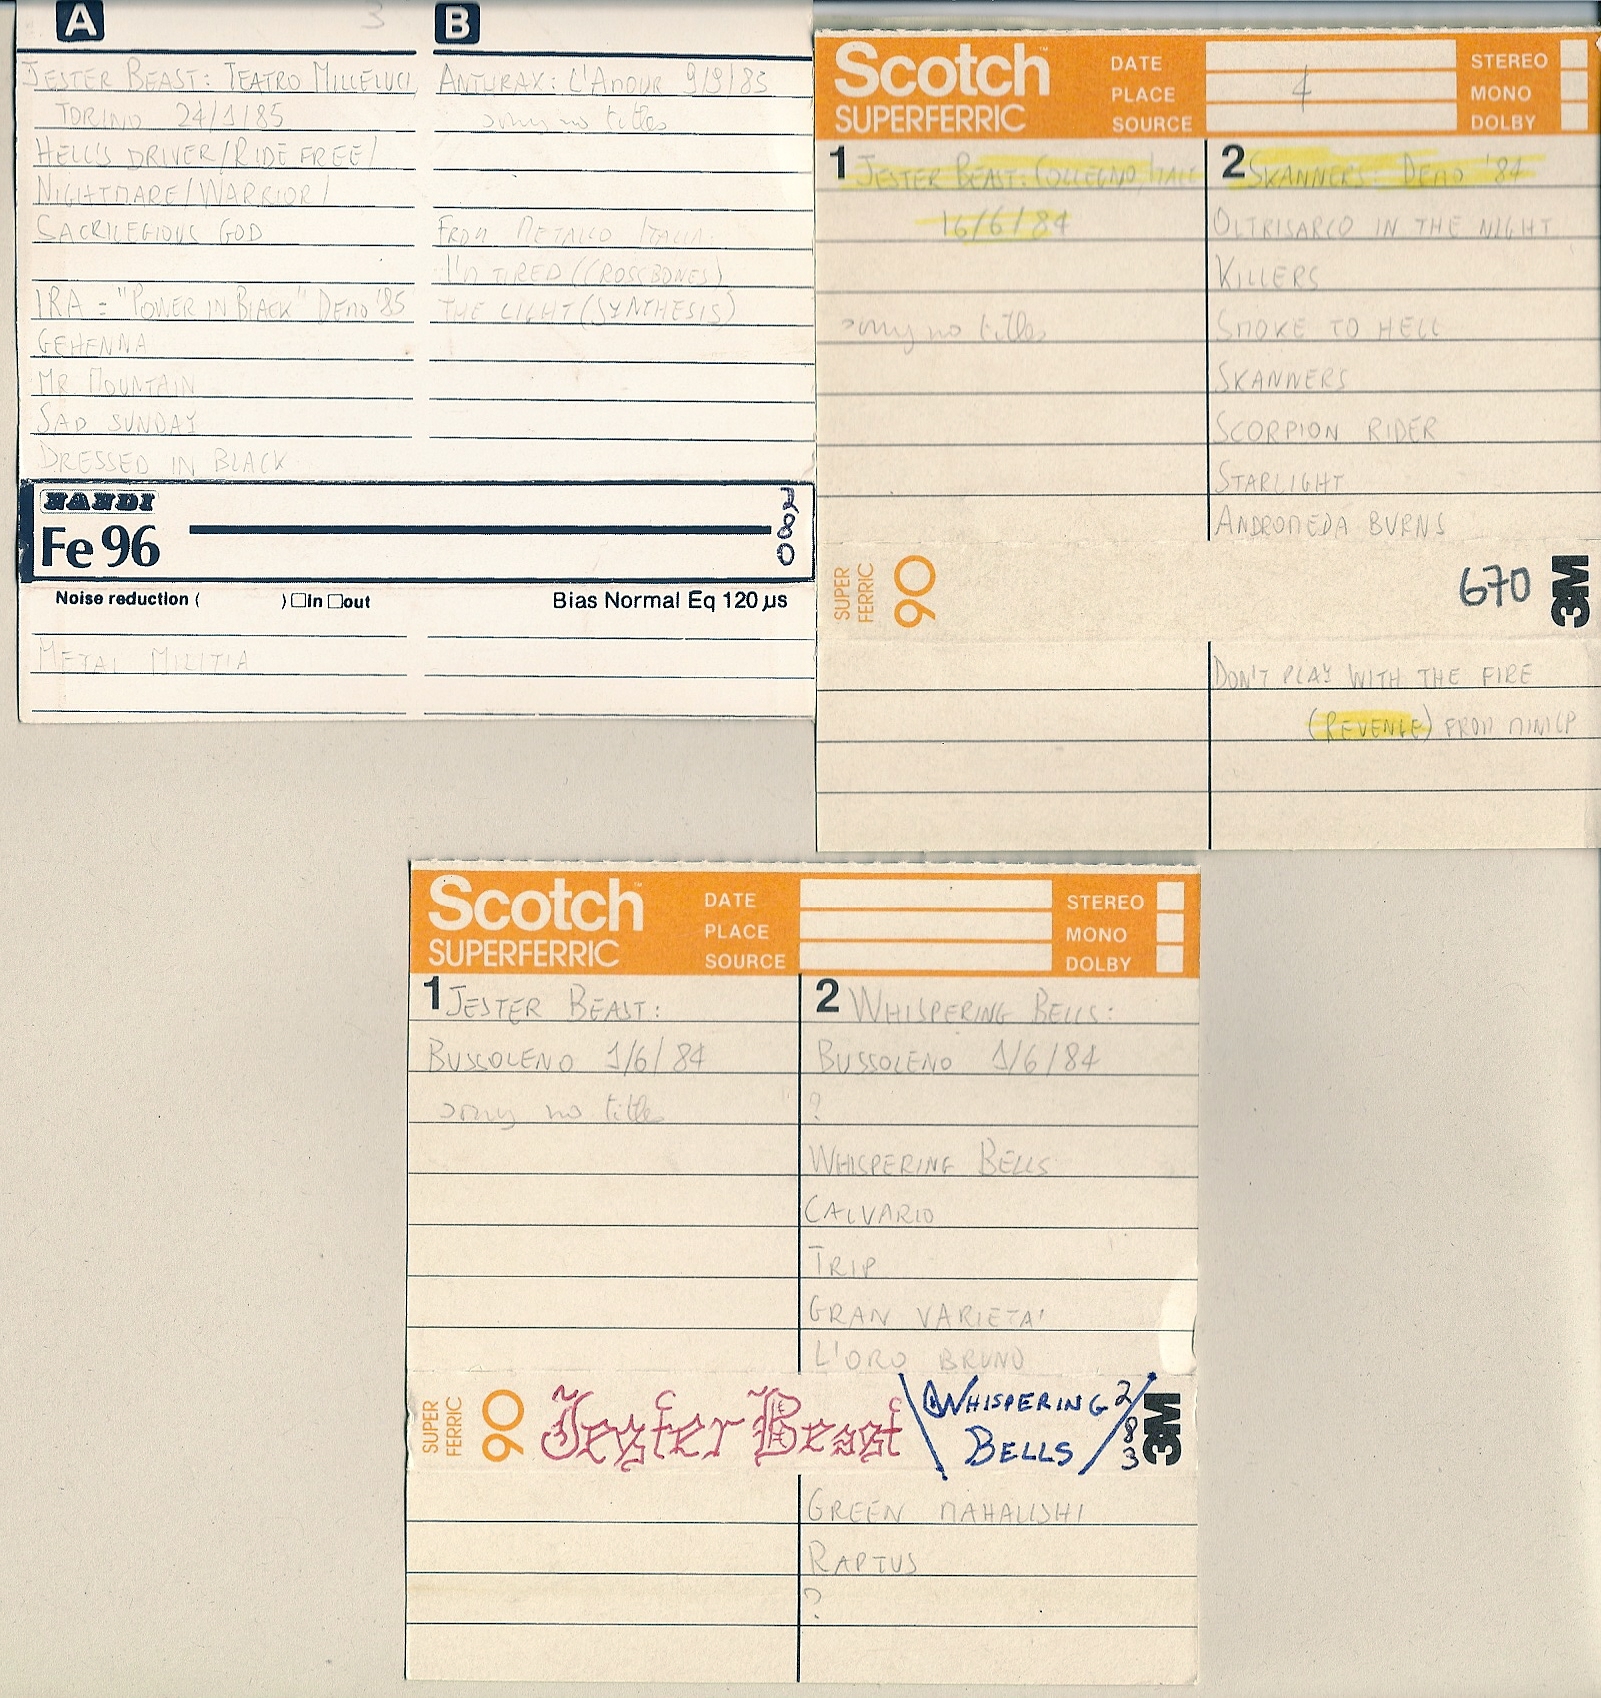 A 3
JESTER BEAST: TEATRO MILLELUCI
TORINO 24/1/85
HELL'S DRIVER/RIDE FREE/
NIGHTMARE/WARRIOR/
SACRILEGIOUS GOD
IRA = "POWER IN BLACK" DEMO '85
GEHENNA
MR MOUNTAIN
SAD SUNDAY
DRESSED IN BLACK
B
ANTHRAX: L'AMOUR 9/9/85
sorry no titles
FROM METALLO ITALIA:
I'M TIRED (CROSSBONES)
THE LIGHT (SYNTHESIS)
HANDI
Fe 96
280
Noise reduction ( ) in out
Bias Normal Eq 120 µs
METAL MILITIA
Scotch™
SUPERFERRIC
DATE
PLACE
SOURCE
4
STEREO
MONO
DOLBY
1 JESTER BEAST: COLLEGNO, ITALY
16/6/84
sorry no titles
2 SKANNERS: DEMO '84
OLTRISARCO IN THE NIGHT
KILLERS
SMOKE TO HELL
SKANNERS
SCORPION RIDER
STARLIGHT
ANDROMEDA BURNS
SUPER
FERRIC
90
670
3M
DON'T PLAY WITH THE FIRE
(REVENGE) FROM MINILP
Scotch™
SUPERFERRIC
DATE
PLACE
SOURCE
STEREO
MONO
DOLBY
1 JESTER BEAST:
BUSSOLENO 1/6/84
sorry no titles
2 WHISPERING BELLS:
BUSSOLENO 1/6/84
?
WHISPERING BELLS
CALVARIO
TRIP
GRAN VARIETA'
L'ORO BRUNO
SUPER
FERRIC
90
Jester Beast
WHISPERING
BELLS
283
3M
GREEN MAHALISHI
RAPTUS
?